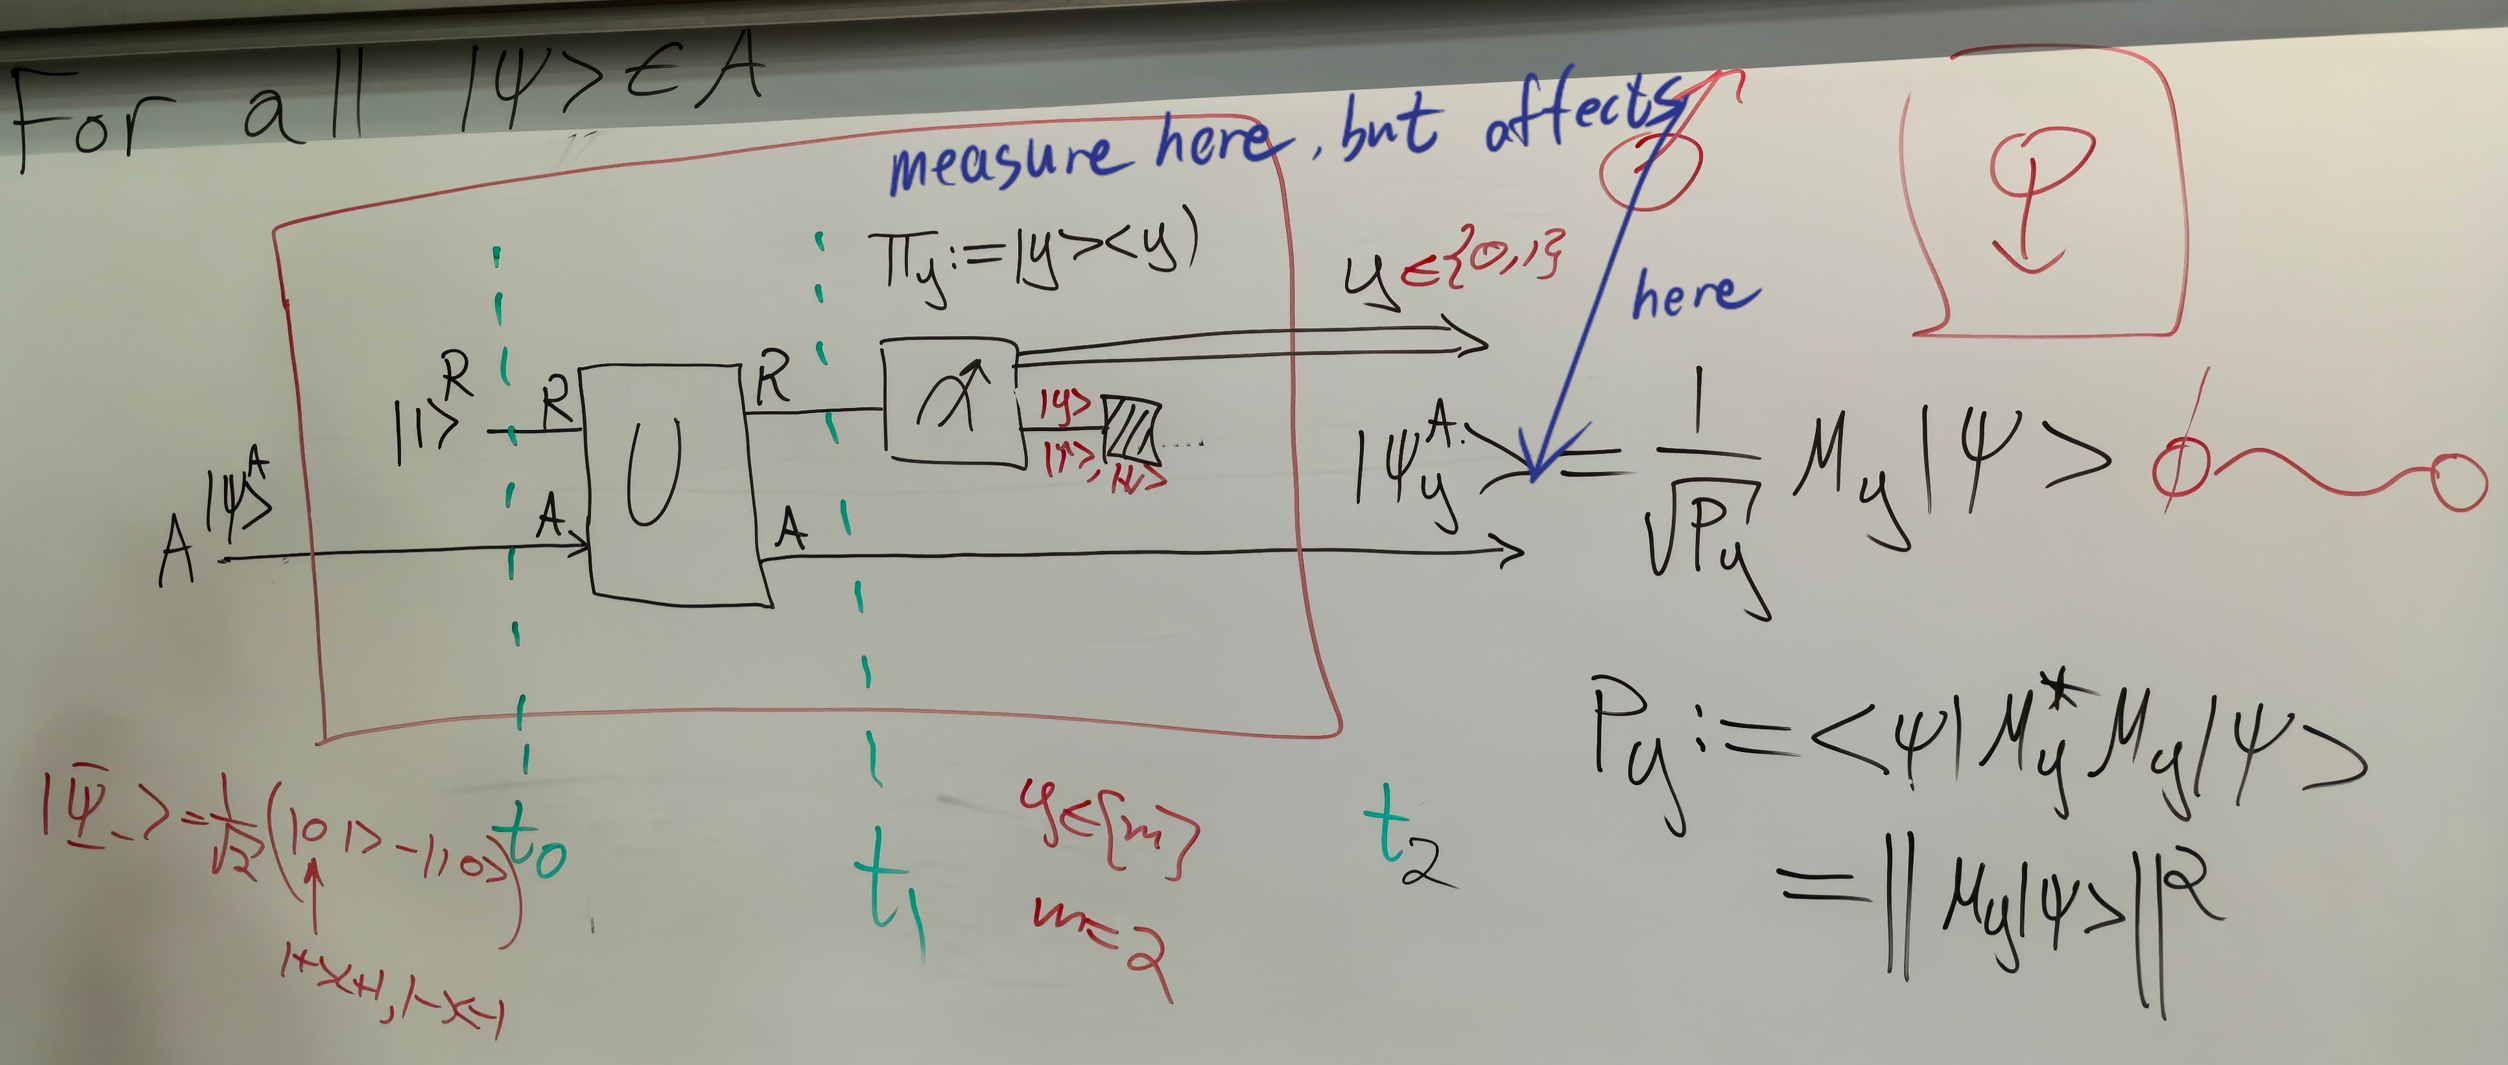 For all |ψ> ∈ A
measure here, but affects
here
Π_y := |y><y|
y ∈ {0,1}
R
R
R
|1>
U
|y>
|ψ>^A
A
A
A
|ψ_y^A> = 1/√P_y M_y |ψ>
P_y := <ψ| M_y^* M_y |ψ>
= || M_y |ψ> ||^2
|Ψ_-> = 1/√2 (|01> - |10>)
|+><+|, |-><-|
t_0
t_1
t_2
y ∈ [m]
m=2